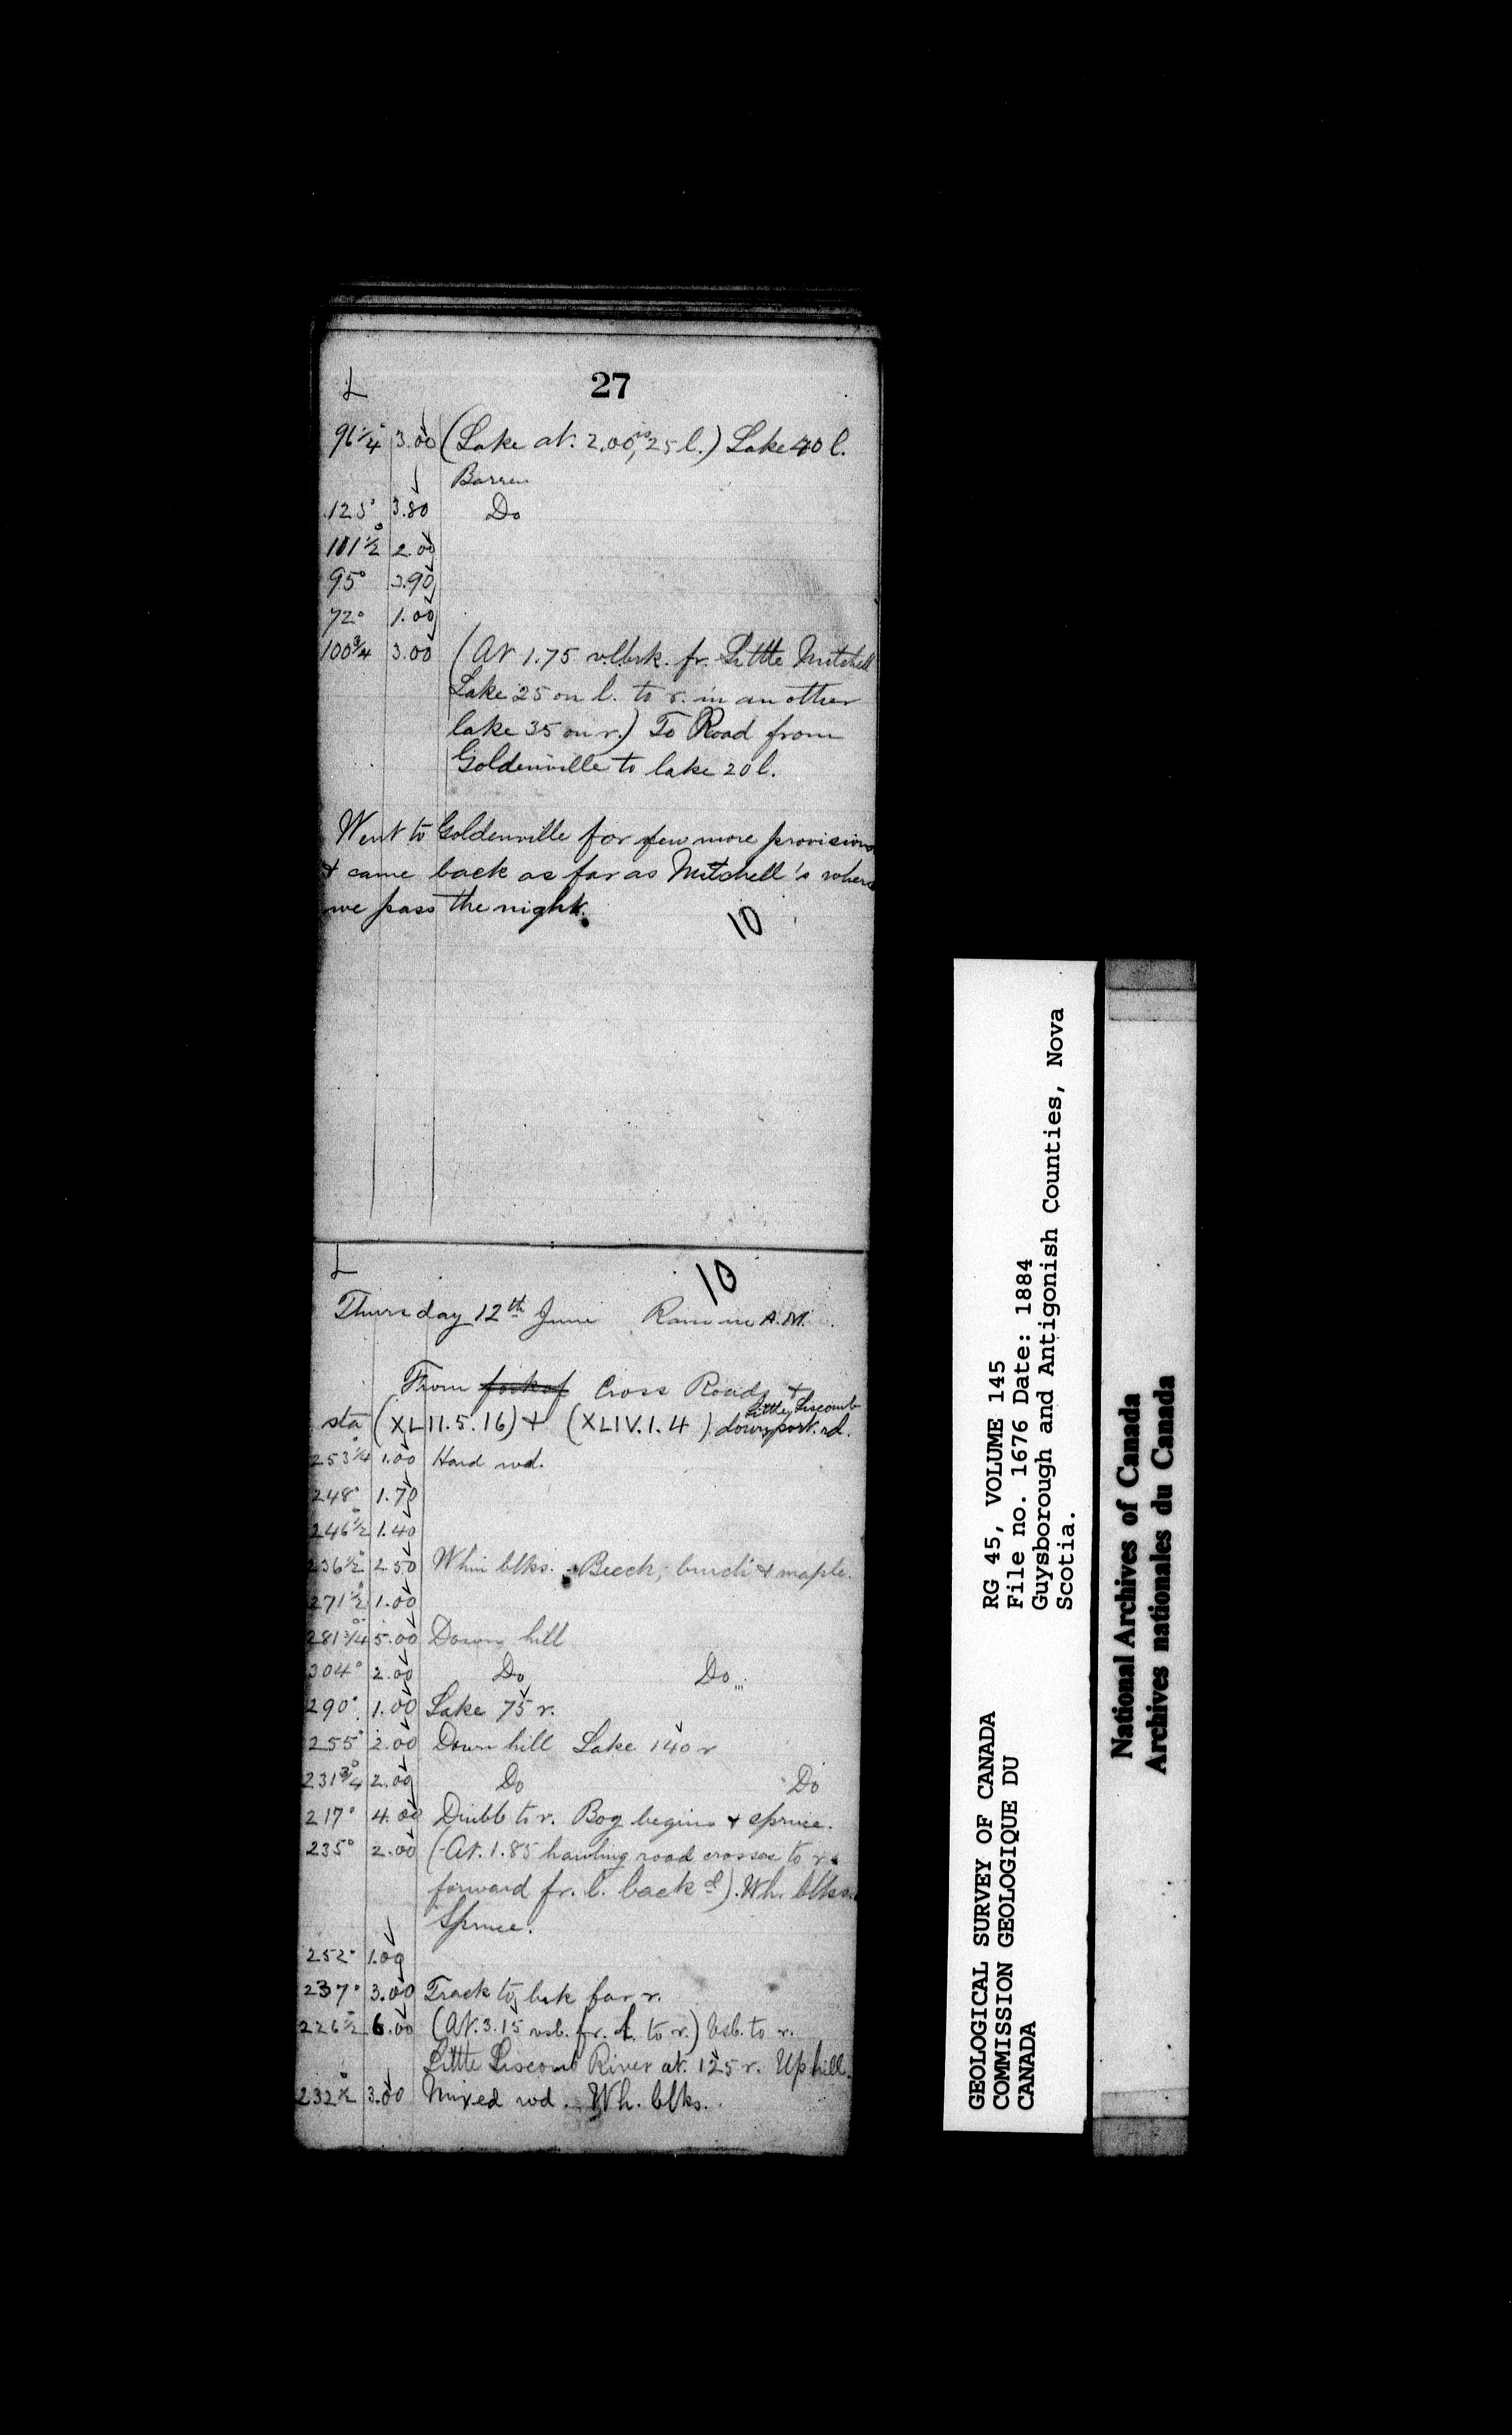 27
L
96 1/4° 3.00 (Lake at 2.00, is 25 l.) Lake 40 l.
Barren
125° 3.80 Do
101 1/2° 2.00
95° 3.90
72° 1.00
100 3/4 3.00 (At 1.75 v.l.brk. fr. Little Mitchell
Lake 25 on l. to r. in another
lake 35 on r.) To Road from
Goldenville to lake 20 l.
Went to Goldenville for few more provisions
& came back as far as Mitchell's where
we pass the night.
10
L
10
Thursday 12th June Rain in A.M.
From fork of Cross Roads &
Little Liscomb
sta (XLII.5.16) & (XLIV.1.4) down port. rd.
253 1/4° 1.00 Hard wd.
248° 1.70
246 1/2° 1.40
236 1/2° 2.50 Whin blks. Beech, birch & maple.
271 1/2° 1.00
281 3/4° 5.00 Down hill
304° 2.00 Do Do
290° 1.00 Lake 75 r.
255° 2.00 Down hill Lake 140 r
231 3/4° 2.00 Do Do
217° 4.00 to r. Bog begins & spruce.
235° 2.00 (At 1.85 hauling road crosses to r.
forward fr. l. backd). Wh. blks.
Spruce.
252° 1.00
237° 3.00 Track to brk far r.
226 1/2° 6.00 (At 3.15 vsb. fr. l. to r.) Vsb. to r.
Little Liscomb River at 125 r. Up hill.
232 1/2° 3.00 Mixed wd. Wh. blks.
GEOLOGICAL SURVEY OF CANADA
COMMISSION GEOLOGIQUE DU
CANADA
RG 45, VOLUME 145
File no. 1676 Date: 1884
Guysborough and Antigonish Counties, Nova
Scotia.
National Archives of Canada
Archives nationales du Canada